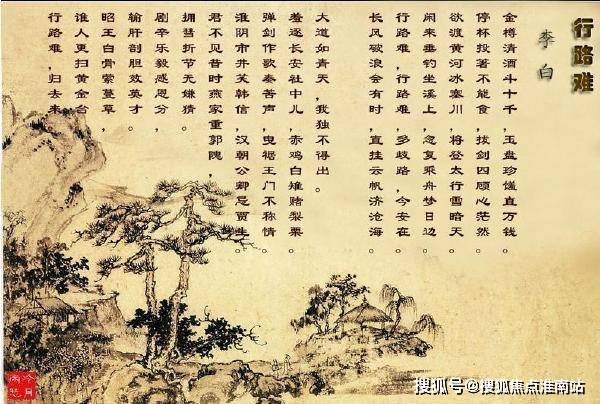 行路难
李白
金樽清酒斗十千，玉盘珍馐直万钱。
停杯投著不能食，拔剑四顾心茫然。
欲渡黄河冰塞川，将登太行雪暗天。
闲来垂钓坐溪上，忽复乘舟梦日边。
行路难，行路难，多歧路，今安在。
长风破浪会有时，直挂云帆济沧海。
大道如青天，我独不得出。
羞逐长安社中儿，赤鸡白雉赌梨栗。
弹剑作歌奏苦声，曳裾王门不称情。
淮阴市井笑韩信，汉朝公卿忌贾生。
君不见昔时燕家重郭隗，
拥彗折节无嫌猜。
剧辛乐毅感恩分，
输肝剖胆效英才。
昭王白骨萦蔓草，
谁人更扫黄金台。
行路难，归去来。
搜狐号@搜狐焦点淮南站